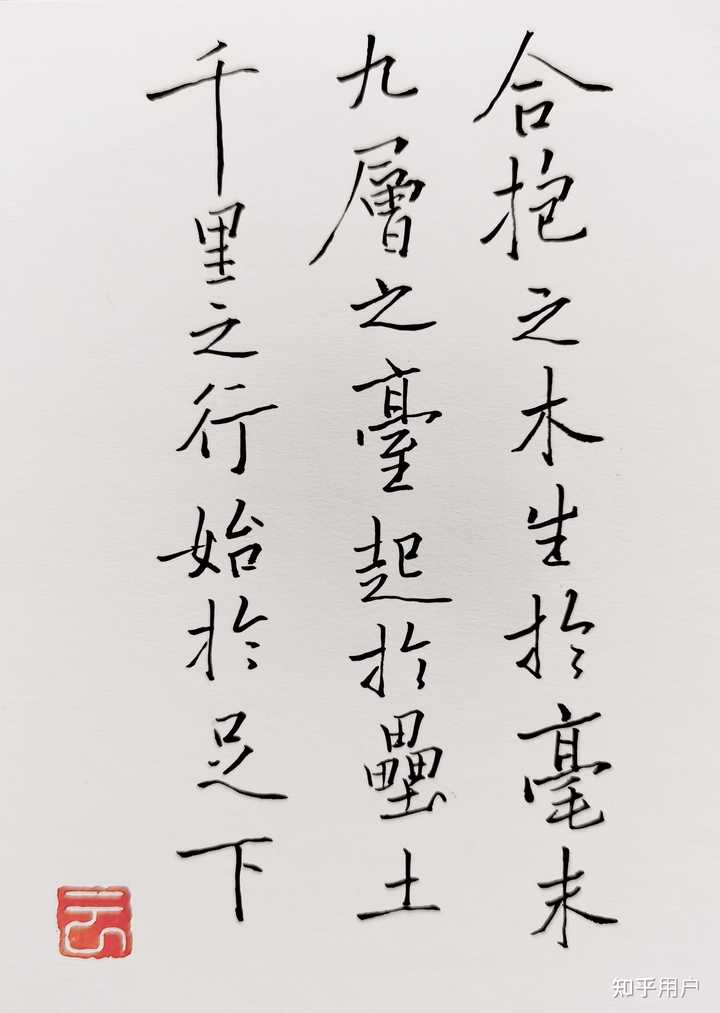 合抱之木生於毫末
九層之臺起於壘土
千里之行始於足下
云
知乎用户